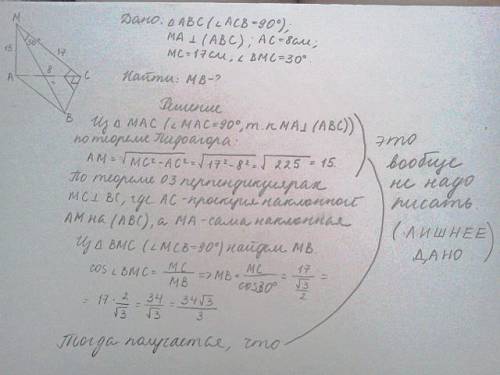 Дано: △ABC (∠ACB=90°);
MA⊥(ABC); AC=8см,
MC=17см, ∠BMC=30°.
Найти: MB-?
M
30°
17
15
8
A
C
B
Решение
Из △MAC (∠MAC=90°, т.к MA⊥(ABC))
по теореме Пифагора:
AM=√MC²-AC²=√17²-8²=√225=15.
По теореме О3 перпендикулярах
MC⊥BC, где AC-проекция наклонной
AM на (ABC), а MA-сама наклонная
Из △BMC (∠MCB=90°) найдем MB.
cos∠BMC=MC/MB=>MB=MC/cos30°=17/(√3/2)=
=17·2/√3=34/√3=34√3/3
Тогда получается, что
это
вообще
не надо
писать
(ЛИШНЕЕ)
ДАНО